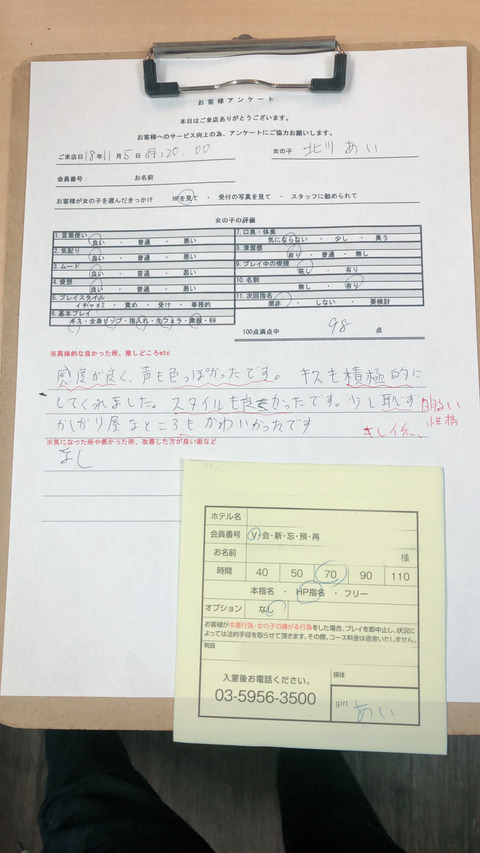 お客様アンケート
本日はご来店ありがとうございます。
お客様へのサービス向上の為、アンケートにご協力お願いします。
ご来店日 18年 11月 5日 20:00 女の子 北川 あい
会員番号: お名前
お客様が女の子を選んだきっかけ HPを見て ・ 受付の写真を見て ・ スタッフに勧められて
女の子の評価
1. 言葉使い
良い ・ 普通 ・ 悪い
2. 気配り
良い ・ 普通 ・ 悪い
3. ムード
良い ・ 普通 ・ 悪い
4. 愛想
良い ・ 普通 ・ 悪い
5. プレイスタイル
イチャ×2 ・ 責め ・ 受け ・ 事務的
6. 基本プレイ
キス・全身リップ・指入れ・生フェラ・素股・69
7. 口臭・体臭
気にならない ・ 少し ・ 臭う
8. 清潔感
有り ・ 普通 ・ 無し
9. プレイ中の喫煙
無し ・ 有り
10. 名刺
無し ・ 有り
11. 次回指名
是非 ・ しない ・ 要検討
100点満点中 98 点
※具体的な良かった所、推しどころetc
感度が良く、声も色っぽかったです。 キスも積極的に
してくれました。スタイルも良かったです。少し恥ず
かしがり屋なところもかわいかったです
明るい
性格
キレイ系、
※気になった所や悪かった所、改善した方が良い面など
なし
ホテル名
会員番号 V・会・新・忘・預・再
お名前 様
時間 40 50 70 90 110
本指名 ・ HP指名 ・ フリー
オプション なし
お客様が本番行為・女の子の嫌がる行為をした場合、プレイを即中止し、状況に
よっては法的手段を取らせて頂きます。その際、コース料金は返金いたしません。
相談
入室後お電話ください。
03-5956-3500
媒体
girl あい